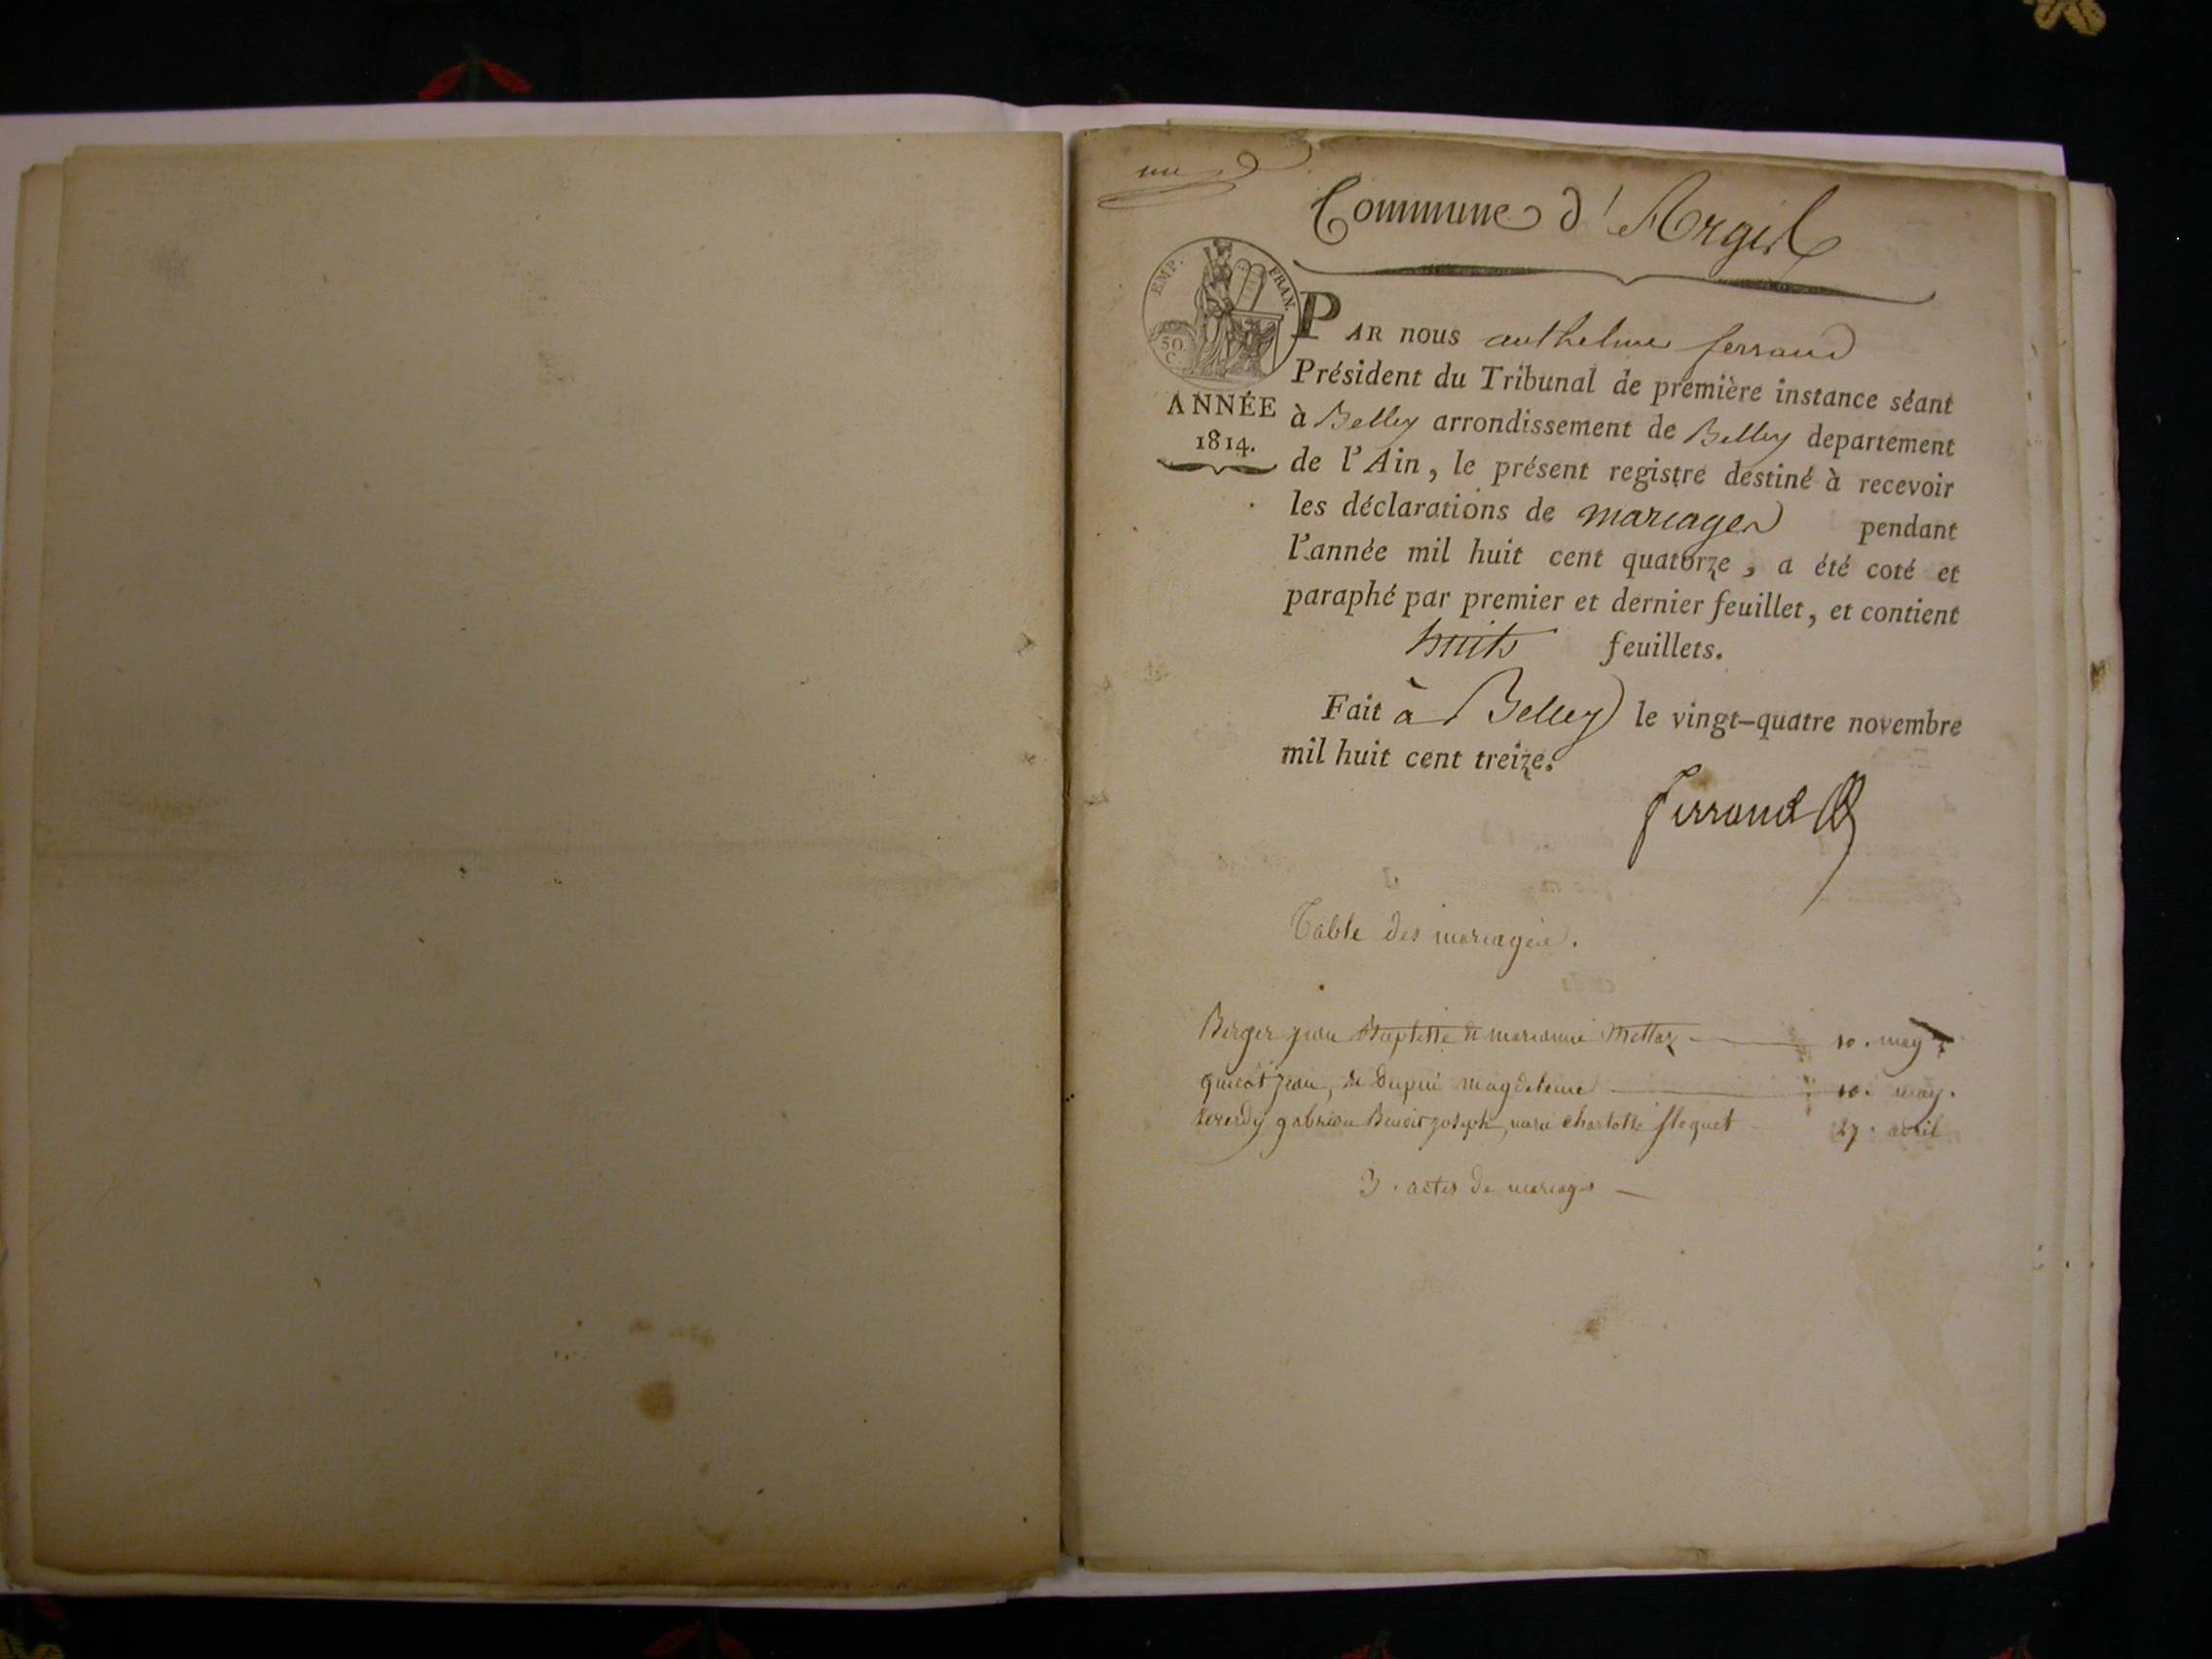 un
Commune d'Argis
EMP. FRAN.
50.
C.
ANNÉE
1814.
PAR nous anthelme ferrand
Président du Tribunal de première instance séant
à Belley arrondissement de Belley departement
de l'Ain, le présent registre destiné à recevoir
les déclarations de mariages pendant
l'année mil huit cent quatorze, a été coté et
paraphé par premier et dernier feuillet, et contient
huits feuillets.
Fait à Belley le vingt-quatre novembre
mil huit cent treize.
ferrand
Table des mariages.
Berger jean Baptiste et marianne Mettaz 10. may
jean, et Dupui magdeleine 10. may.
gabriel Benoit joseph, marie charlotte floquet 27. avril
3. actes de mariage